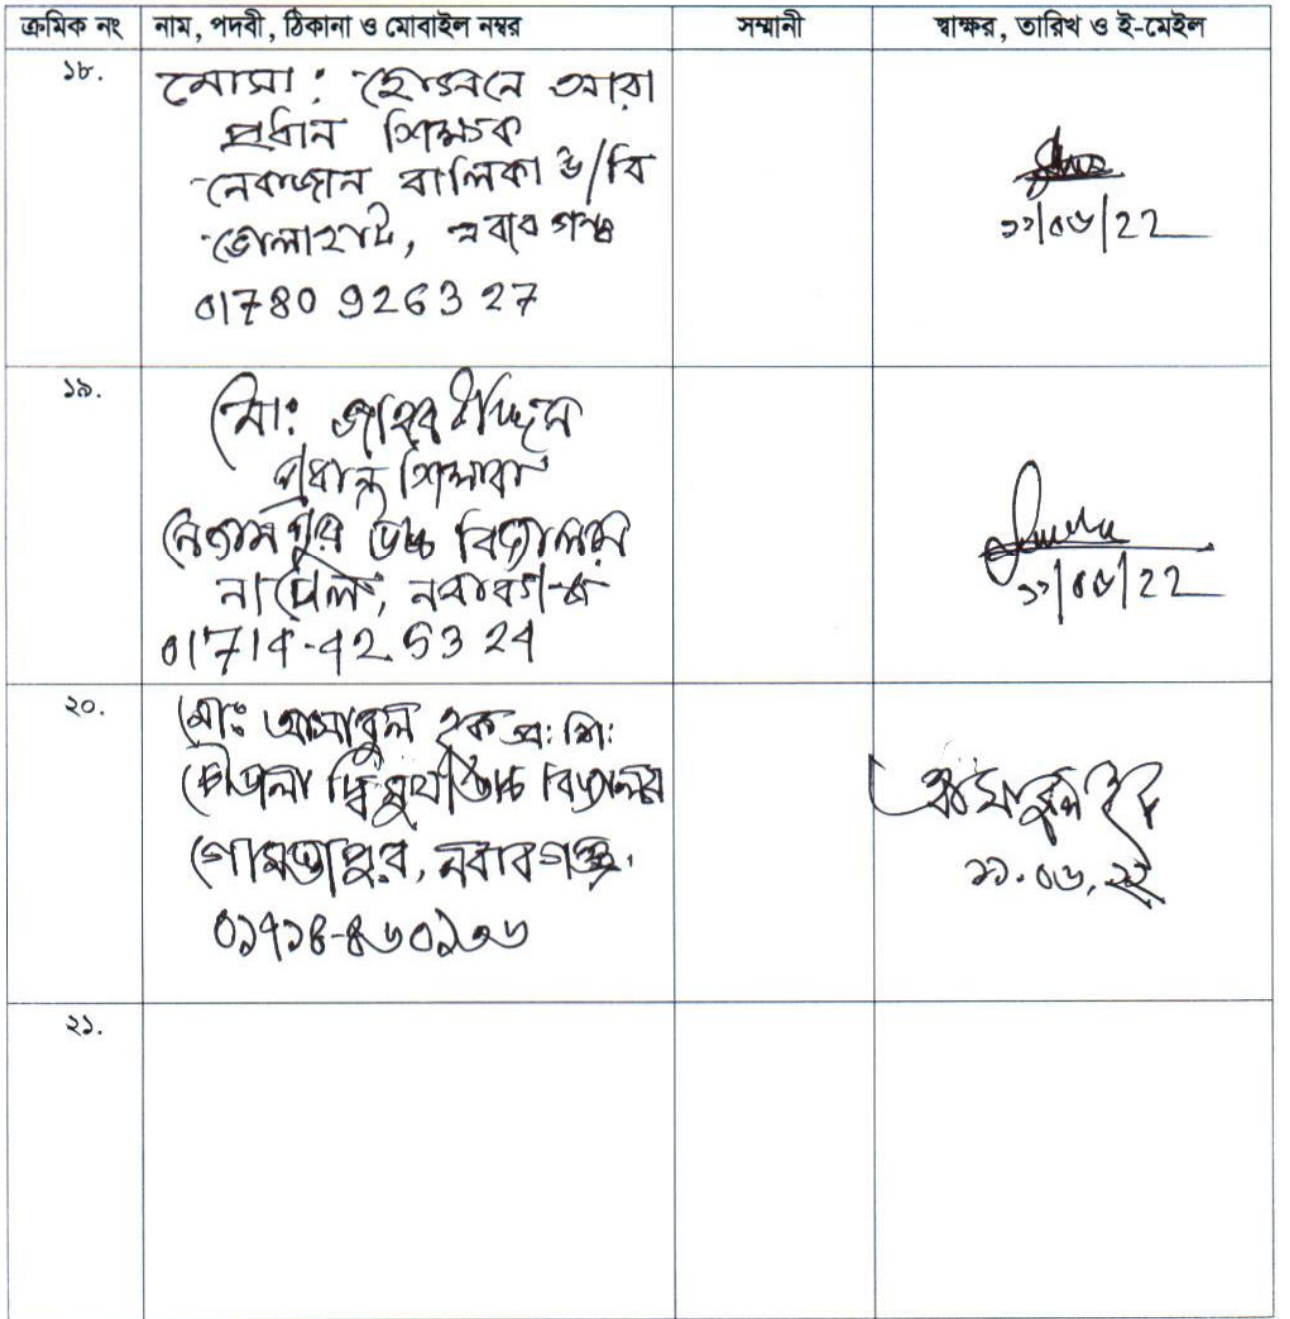 ক্রমিক নং নাম, পদবী, ঠিকানা ও মোবাইল নম্বর সম্মানী স্বাক্ষর, তারিখ ও ই-মেইল
১৮.
মোসা: হোসনে আরা
প্রধান শিক্ষক
বালিকা উ/বি
ভোলাহাট, নবাবগঞ্জ
01780 926327
১১/০৬/22
১৯.
মোঃ উদ্দিন
প্রধান শিক্ষক
উচ্চ বিদ্যালয়
নাচোল, নবাবগঞ্জ
01714-42 53 24
১১/০৬/22
২০.
মোঃ আসাবুল হক প্র: শি:
চৌডালা দ্বিমুখী উচ্চ বিদ্যালয়
গোমস্তাপুর, নবাবগঞ্জ.
০১৭১৪-৪৬০১৩৬
১১.০৬.২২
২১.